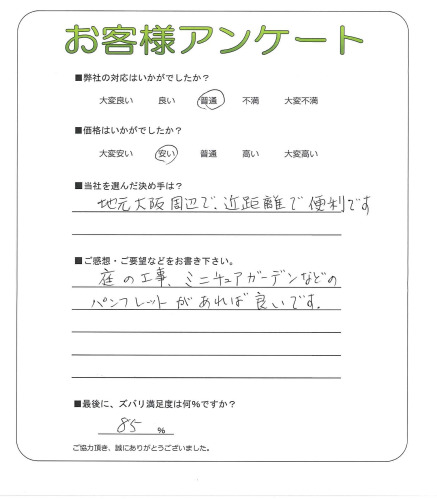 お客様アンケート
■弊社の対応はいかがでしたか？
大変良い 良い 普通 不満 大変不満
■価格はいかがでしたか？
大変安い 安い 普通 高い 大変高い
■当社を選んだ決め手は？
地元大阪周辺で、近距離で便利です
■ご感想・ご要望などをお書き下さい。
庭の工事、ミニチュアガーデンなどの
パンフレットがあれば良いです.
■最後に、ズバリ満足度は何％ですか？
85 ％
ご協力頂き、誠にありがとうございました。